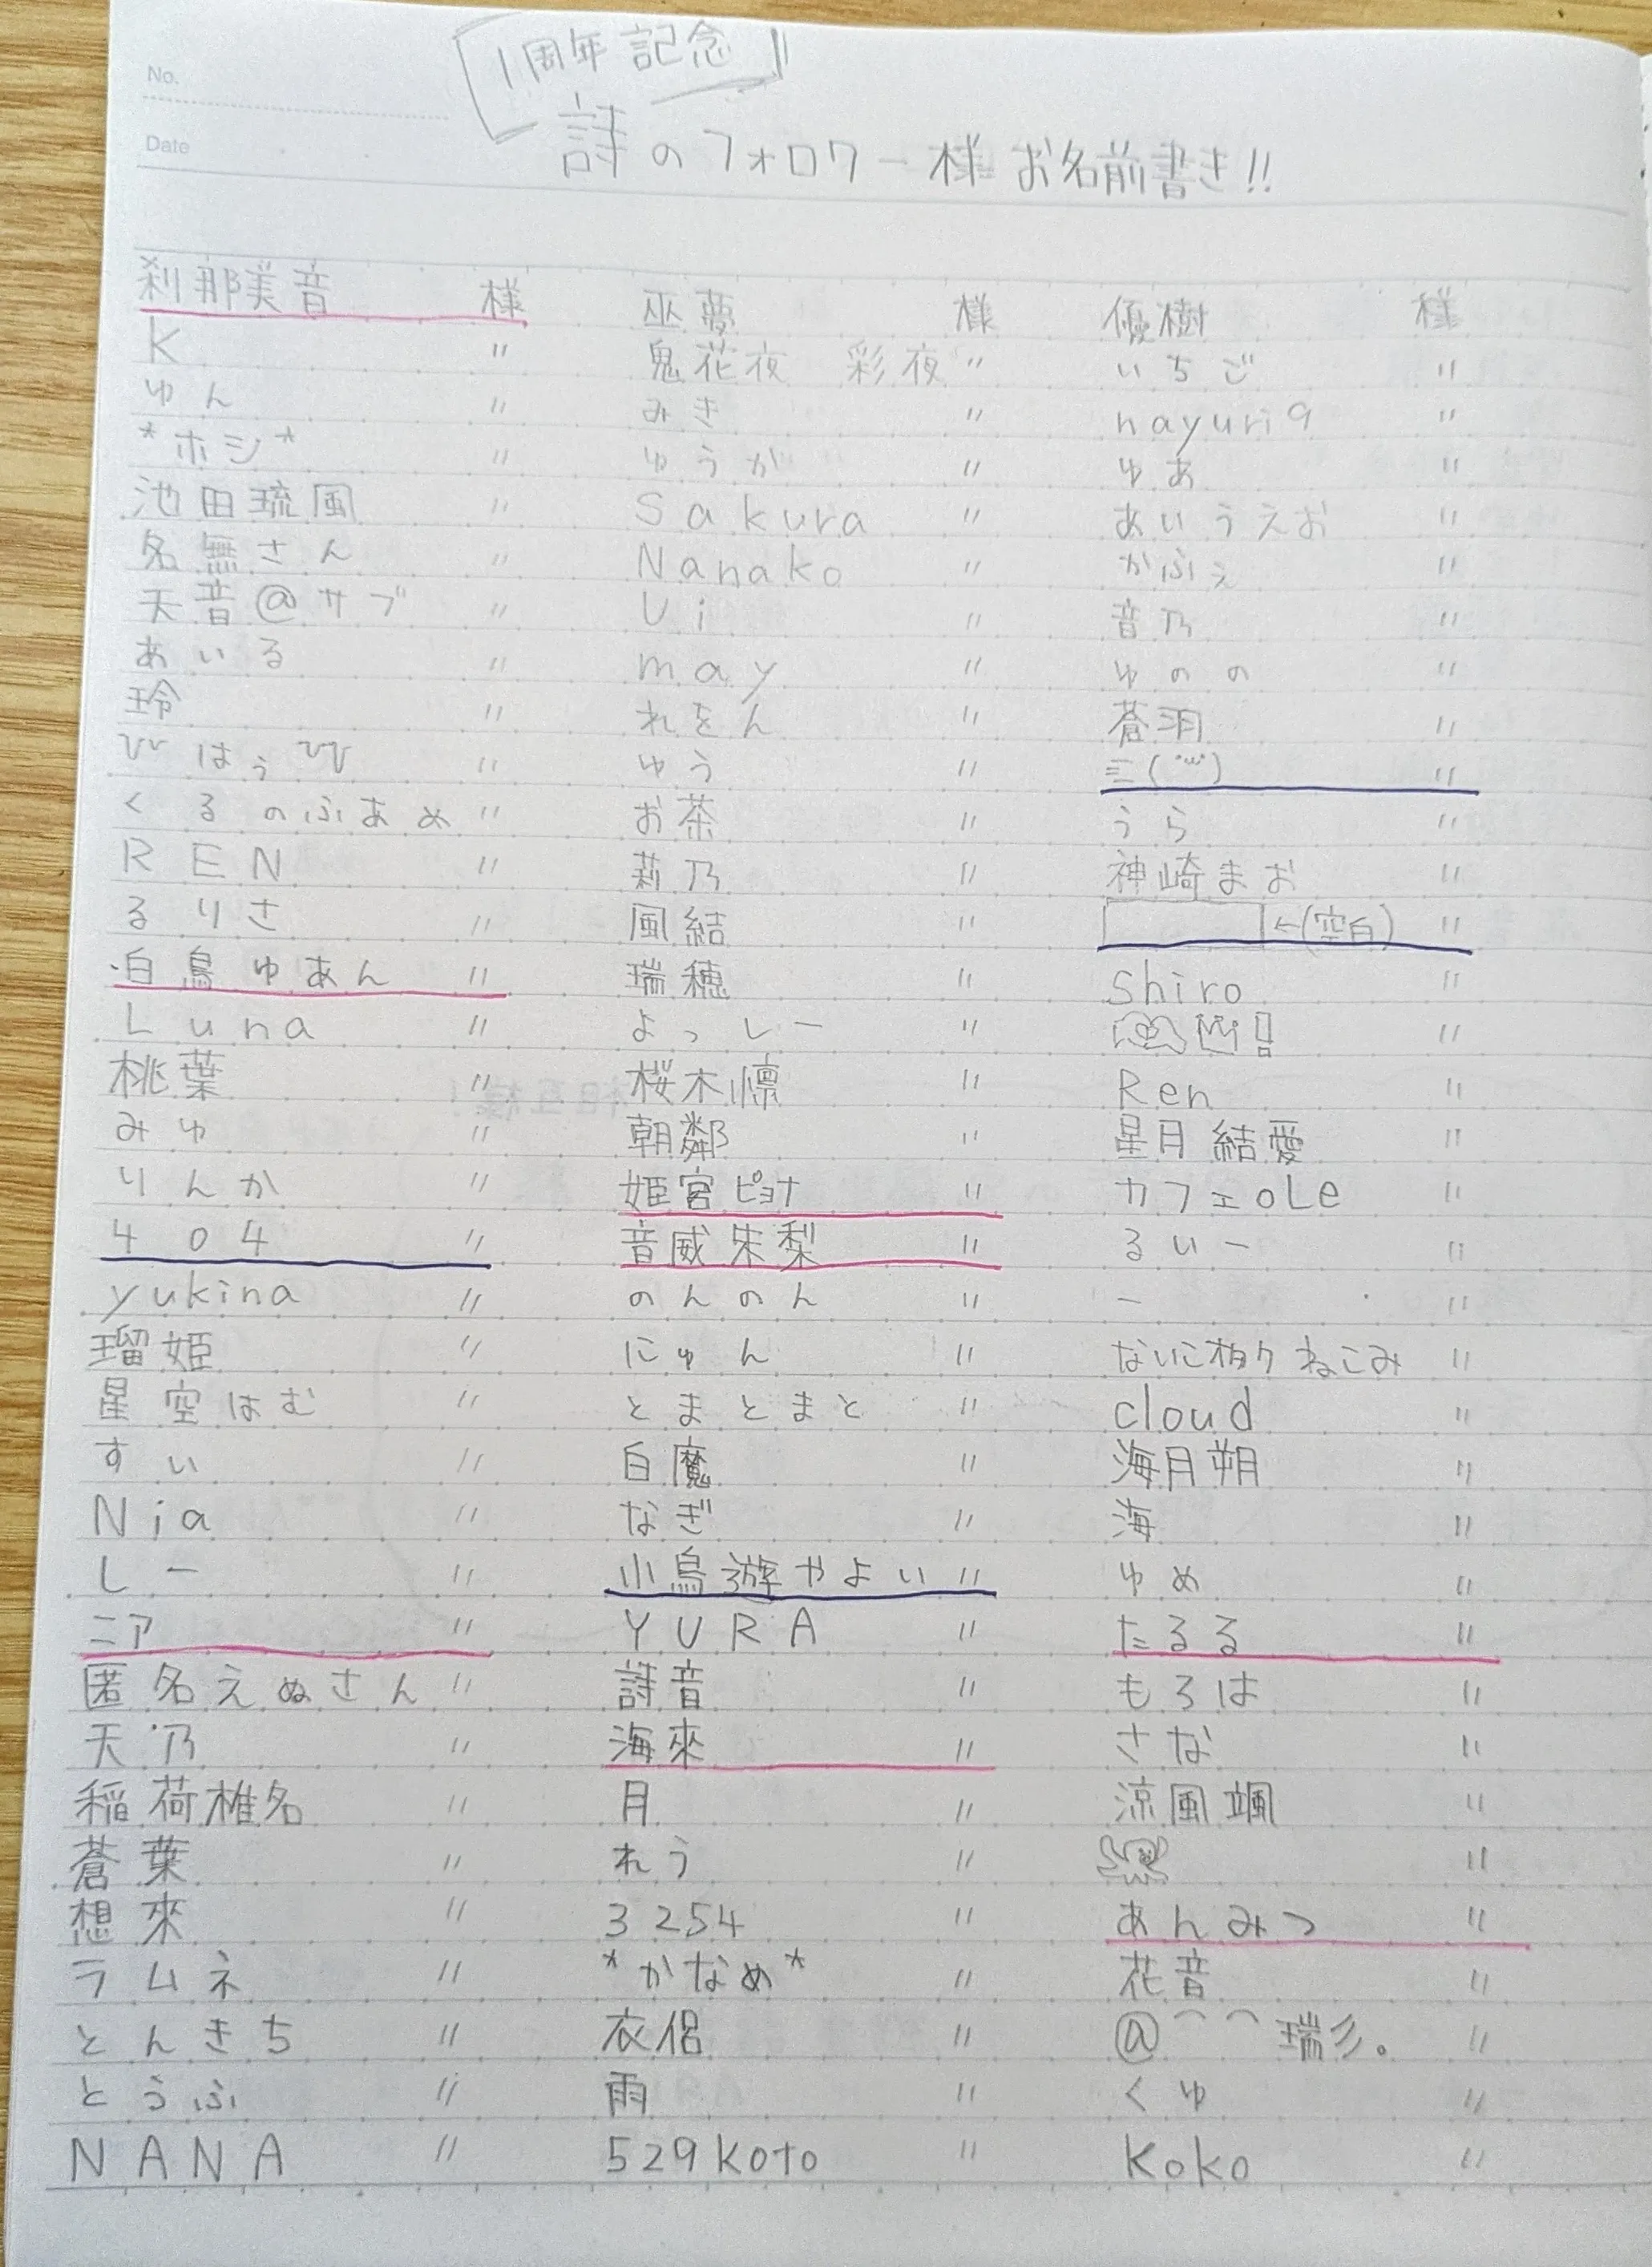 No.
Date
「1周年記念」
詩のフォロワー様お名前書き!!
刹那美音 様
K 〃
ゆん 〃
*ホシ* 〃
池田琉風 〃
名無さん 〃
天音@サブ 〃
あいる 〃
玲 〃
びはぅびび 〃
くるのふあめ 〃
REN 〃
るりさ 〃
白鳥ゆあん 〃
Luna 〃
桃葉 〃
みゆ 〃
りんか 〃
404 〃
yukina 〃
瑠姫 〃
星空はむ 〃
すい 〃
Nia 〃
しー 〃
ニア 〃
匿名えぬさん 〃
天乃 〃
稲荷椎名 〃
蒼葉 〃
想來 〃
ラムネ 〃
とんきち 〃
とうふ 〃
NANA 〃
巫夢 様
鬼花夜 彩夜 〃
みき 〃
ゆうが 〃
Sakura 〃
Nanako 〃
Ui 〃
may 〃
れをん 〃
ゆう 〃
お茶 〃
莉乃 〃
風結 〃
瑞穂 〃
よっしー 〃
桜木懍 〃
朝鄰 〃
姫宮ピョナ 〃
音威朱梨 〃
のんのん 〃
にゅん 〃
とまとまと 〃
白魔 〃
なぎ 〃
小鳥遊やよい 〃
YURA 〃
詩音 〃
海來 〃
月 〃
れう 〃
3254 〃
*かなめ* 〃
衣侶 〃
雨 〃
529koto 〃
優樹 様
いちご 〃
nayuri9 〃
ゆあ 〃
あいうえお 〃
かふぇ 〃
音乃 〃
ゆのの 〃
蒼羽 〃
〃
うら 〃
神崎まお 〃
←(空白) 〃
shiro 〃
〃
Ren 〃
星月結愛 〃
カフェoLe 〃
るいー 〃
ー 〃
ないこ ねこみ 〃
cloud 〃
海月朔 〃
海 〃
ゆめ 〃
たるる 〃
もろは 〃
さな 〃
涼風颯 〃
〃
あんみつ 〃
花音 〃
@⌒⌒瑞彡。 〃
くゆ 〃
Koko 〃